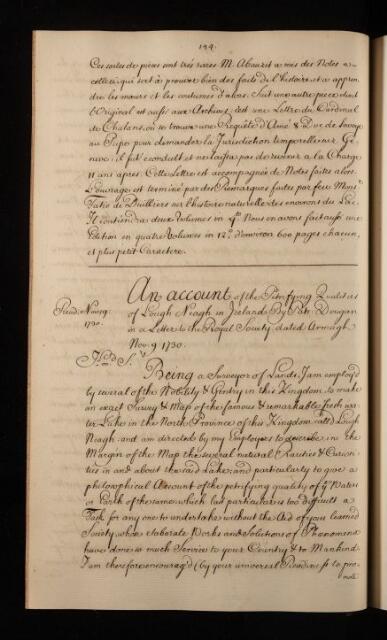 199.
Ces sortes de pieces sont très rares M. Abauzit a mis des Notes a
celle cy qui sert à prouver bien des faits de l'histoire et a appren
dre les mœurs et les coutumes d'alors. Suit une autre piece dont
l'Original est aussi aux Archives; c'est une Lettre du Cardinal
de Chalans, où se trouve une Requête d'Amé 8 Duc de Savoye
au Pape pour demander la Jurisdiction temporelle sur Ge
neve: il fut econduit et ne laissa pas de revenir a la Charge
11 ans apres. Cette Lettre est accompagnée de Notes faites alors.
L'ouvrage est terminé par des Remarques faites par feu Monsr
Fatio de Duilliers sur l'histoire naturelle des environs du Lac.
Il contiendra deux Volumes in 4o. Nous en avons fait aussi une
Edition en quatre Volumes in 12o. d'environ 600 pages chacun,
et plus petit Caractere.
An account of the Petrifying Qualities
of Lough Neagh in Ireland By Patr. Dougan
in a Letter to the Royal Society dated Armagh
Nov. 9 1730.
1730.
Hond. Srs.
Being a Surveyor of Lands, I am employ'd
by several of the Nobility & Gentry in this Kingdom to make
an exact Survey & Map of the famous & remarkable Fresh wa
ter Lake in the North Province of this Kingdom call'd Lough
Neagh and am directed by my Employers to describe in the
Margin of the Map the several natural Rarities & Curiosi
ties in and about the said Lake, and particularly to give a
philosophical Account of the petrifying quality of ye Water
or Earth of the same which last particular is too difficult a
Task for any one to undertake without the Aid of your learned
Society, whose elaborate Works and Solutions of Phenomena
have done so much Service to your Country & to Mankind.
I am therefore encourag'd (by your universal Readiness to pro-
mote